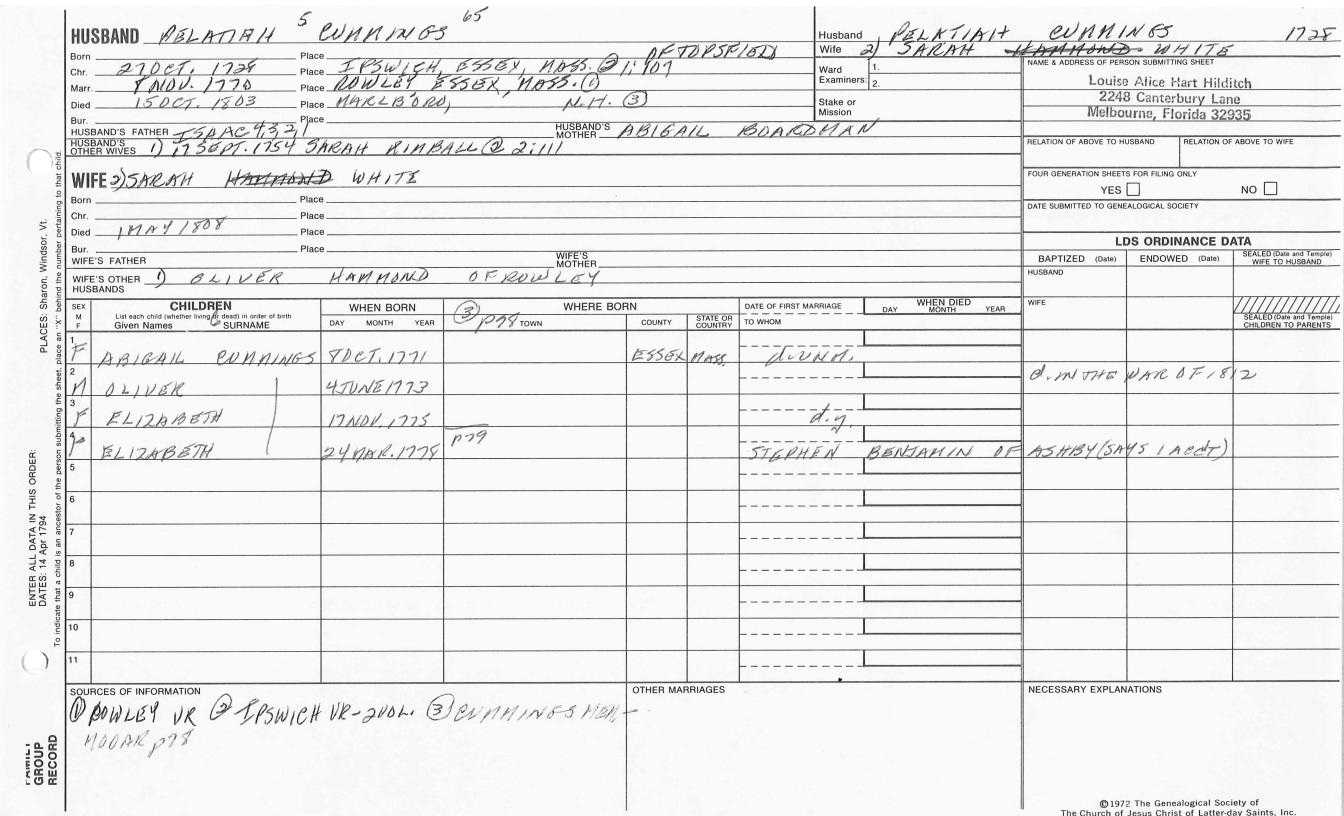 HUSBAND PELATIAH 5 CUMMINGS 65
Husband PELATIAH CUMMINGS 1728
Wife 2) SARAH HAMMOND WHITE
Born Place OF TOPSFIELD
Chr. 27 OCT. 1728 Place IPSWICH, ESSEX, MASS. ② 1:107
Marr. 8 NOV. 1770 Place ROWLEY ESSEX, MASS. ①
Died 15 OCT. 1803 Place MARLBORO, N.H. ③
Bur. Place
Ward Examiners: 1. 2.
Stake or Mission
NAME & ADDRESS OF PERSON SUBMITTING SHEET
Louise Alice Hart Hilditch
2248 Canterbury Lane
Melbourne, Florida 32935
HUSBAND'S FATHER ISAAC 4,3,2,1 HUSBAND'S MOTHER ABIGAIL BOARDMAN
HUSBAND'S OTHER WIVES 1) 17 SEPT. 1754 SARAH KIMBALL ② 2:111
RELATION OF ABOVE TO HUSBAND RELATION OF ABOVE TO WIFE
WIFE 2) SARAH HAMMOND WHITE
FOUR GENERATION SHEETS FOR FILING ONLY
YES NO
Born Place
Chr. Place
Died 1 MAY 1808 Place
Bur. Place
DATE SUBMITTED TO GENEALOGICAL SOCIETY
LDS ORDINANCE DATA
WIFE'S FATHER WIFE'S MOTHER
WIFE'S OTHER HUSBANDS 1) OLIVER HAMMOND OF ROWLEY
BAPTIZED (Date) ENDOWED (Date) SEALED (Date and Temple) WIFE TO HUSBAND
HUSBAND
WIFE
SEALED (Date and Temple) CHILDREN TO PARENTS
SEX M F
CHILDREN
List each child (whether living or dead) in order of birth
Given Names 6 SURNAME
WHEN BORN
DAY MONTH YEAR
WHERE BORN
③ p78 TOWN COUNTY STATE OR COUNTRY
DATE OF FIRST MARRIAGE
TO WHOM
WHEN DIED
DAY MONTH YEAR
1 F ABIGAIL CUMMINGS 8 OCT. 1771 ESSEX MASS. d. UNM.
2 M OLIVER 4 JUNE 1773 d. IN THE WAR OF 1812
3 F ELIZABETH 17 NOV. 1775 d.y.
4 F ELIZABETH 24 MAR. 1778 p79 STEPHEN BENJAMIN OF ASHBY (SAYS 1 ACCT)
5
6
7
8
9
10
11
SOURCES OF INFORMATION
① ROWLEY VR ② IPSWICH VR-2VOL. ③ CUMMINGS MEM-
MOOAR p78
OTHER MARRIAGES
NECESSARY EXPLANATIONS
©1972 The Genealogical Society of
The Church of Jesus Christ of Latter-day Saints, Inc.
PLACES: Sharon, Windsor, Vt.
ENTER ALL DATA IN THIS ORDER:
DATES: 14 Apr 1794
To indicate that a child is an ancestor of the person submitting the sheet, place an "X" behind the number pertaining to that child.
FAMILY
GROUP
RECORD